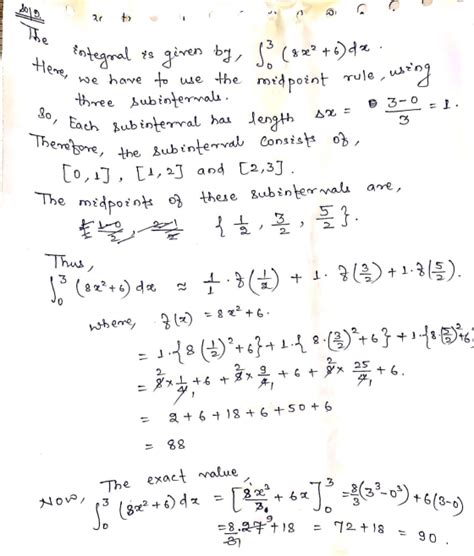 The
integral is given by, ∫₀³ (8x²+6) dx.
Here, we have to use the midpoint rule, using
three subintervals.
So, Each subinterval has length Δx = (3-0)/3 = 1.
Therefore, the subinterval consists of,
[0,1], [1,2] and [2,3].
The midpoints of these subintervals are,
{1/2, 3/2, 5/2}.
Thus,
∫₀³ (8x²+6) dx ≈ 1/1 · f(1/2) + 1· f(3/2) + 1· f(5/2).
where, f(x) = 8x²+6.
= 1·{8(1/2)²+6} + 1·{8·(3/2)²+6} + 1·{8·(5/2)²+6
= 8×1/4 + 6 + 8×9/4 + 6 + 8×25/4 + 6.
= 2+6+18+6+50+6
= 88
Now, The exact value,
∫₀³ (8x²+6) dx = [8x³/3 + 6x]₀³ = 8/3(3³-0³)+6(3-0)
= 8·27/3 + 18 = 72+18 = 90.